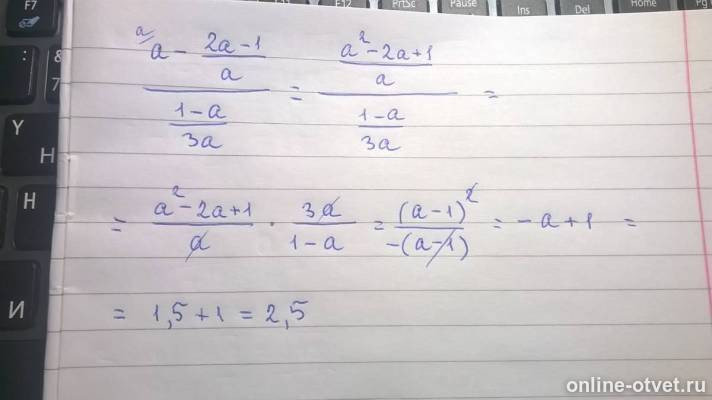 F7 F12 PrtSc Pause Ins Del Home Pg
: & 7
Y Н
Н
И
a/ a - (2a-1)/a / (1-a)/3a = (a² - 2a + 1)/a / (1-a)/3a =
= (a² - 2a + 1)/a · 3a/(1-a) = (a-1)²/-(a-1) = -a + 1 =
= 1,5 + 1 = 2,5
online-otvet.ru